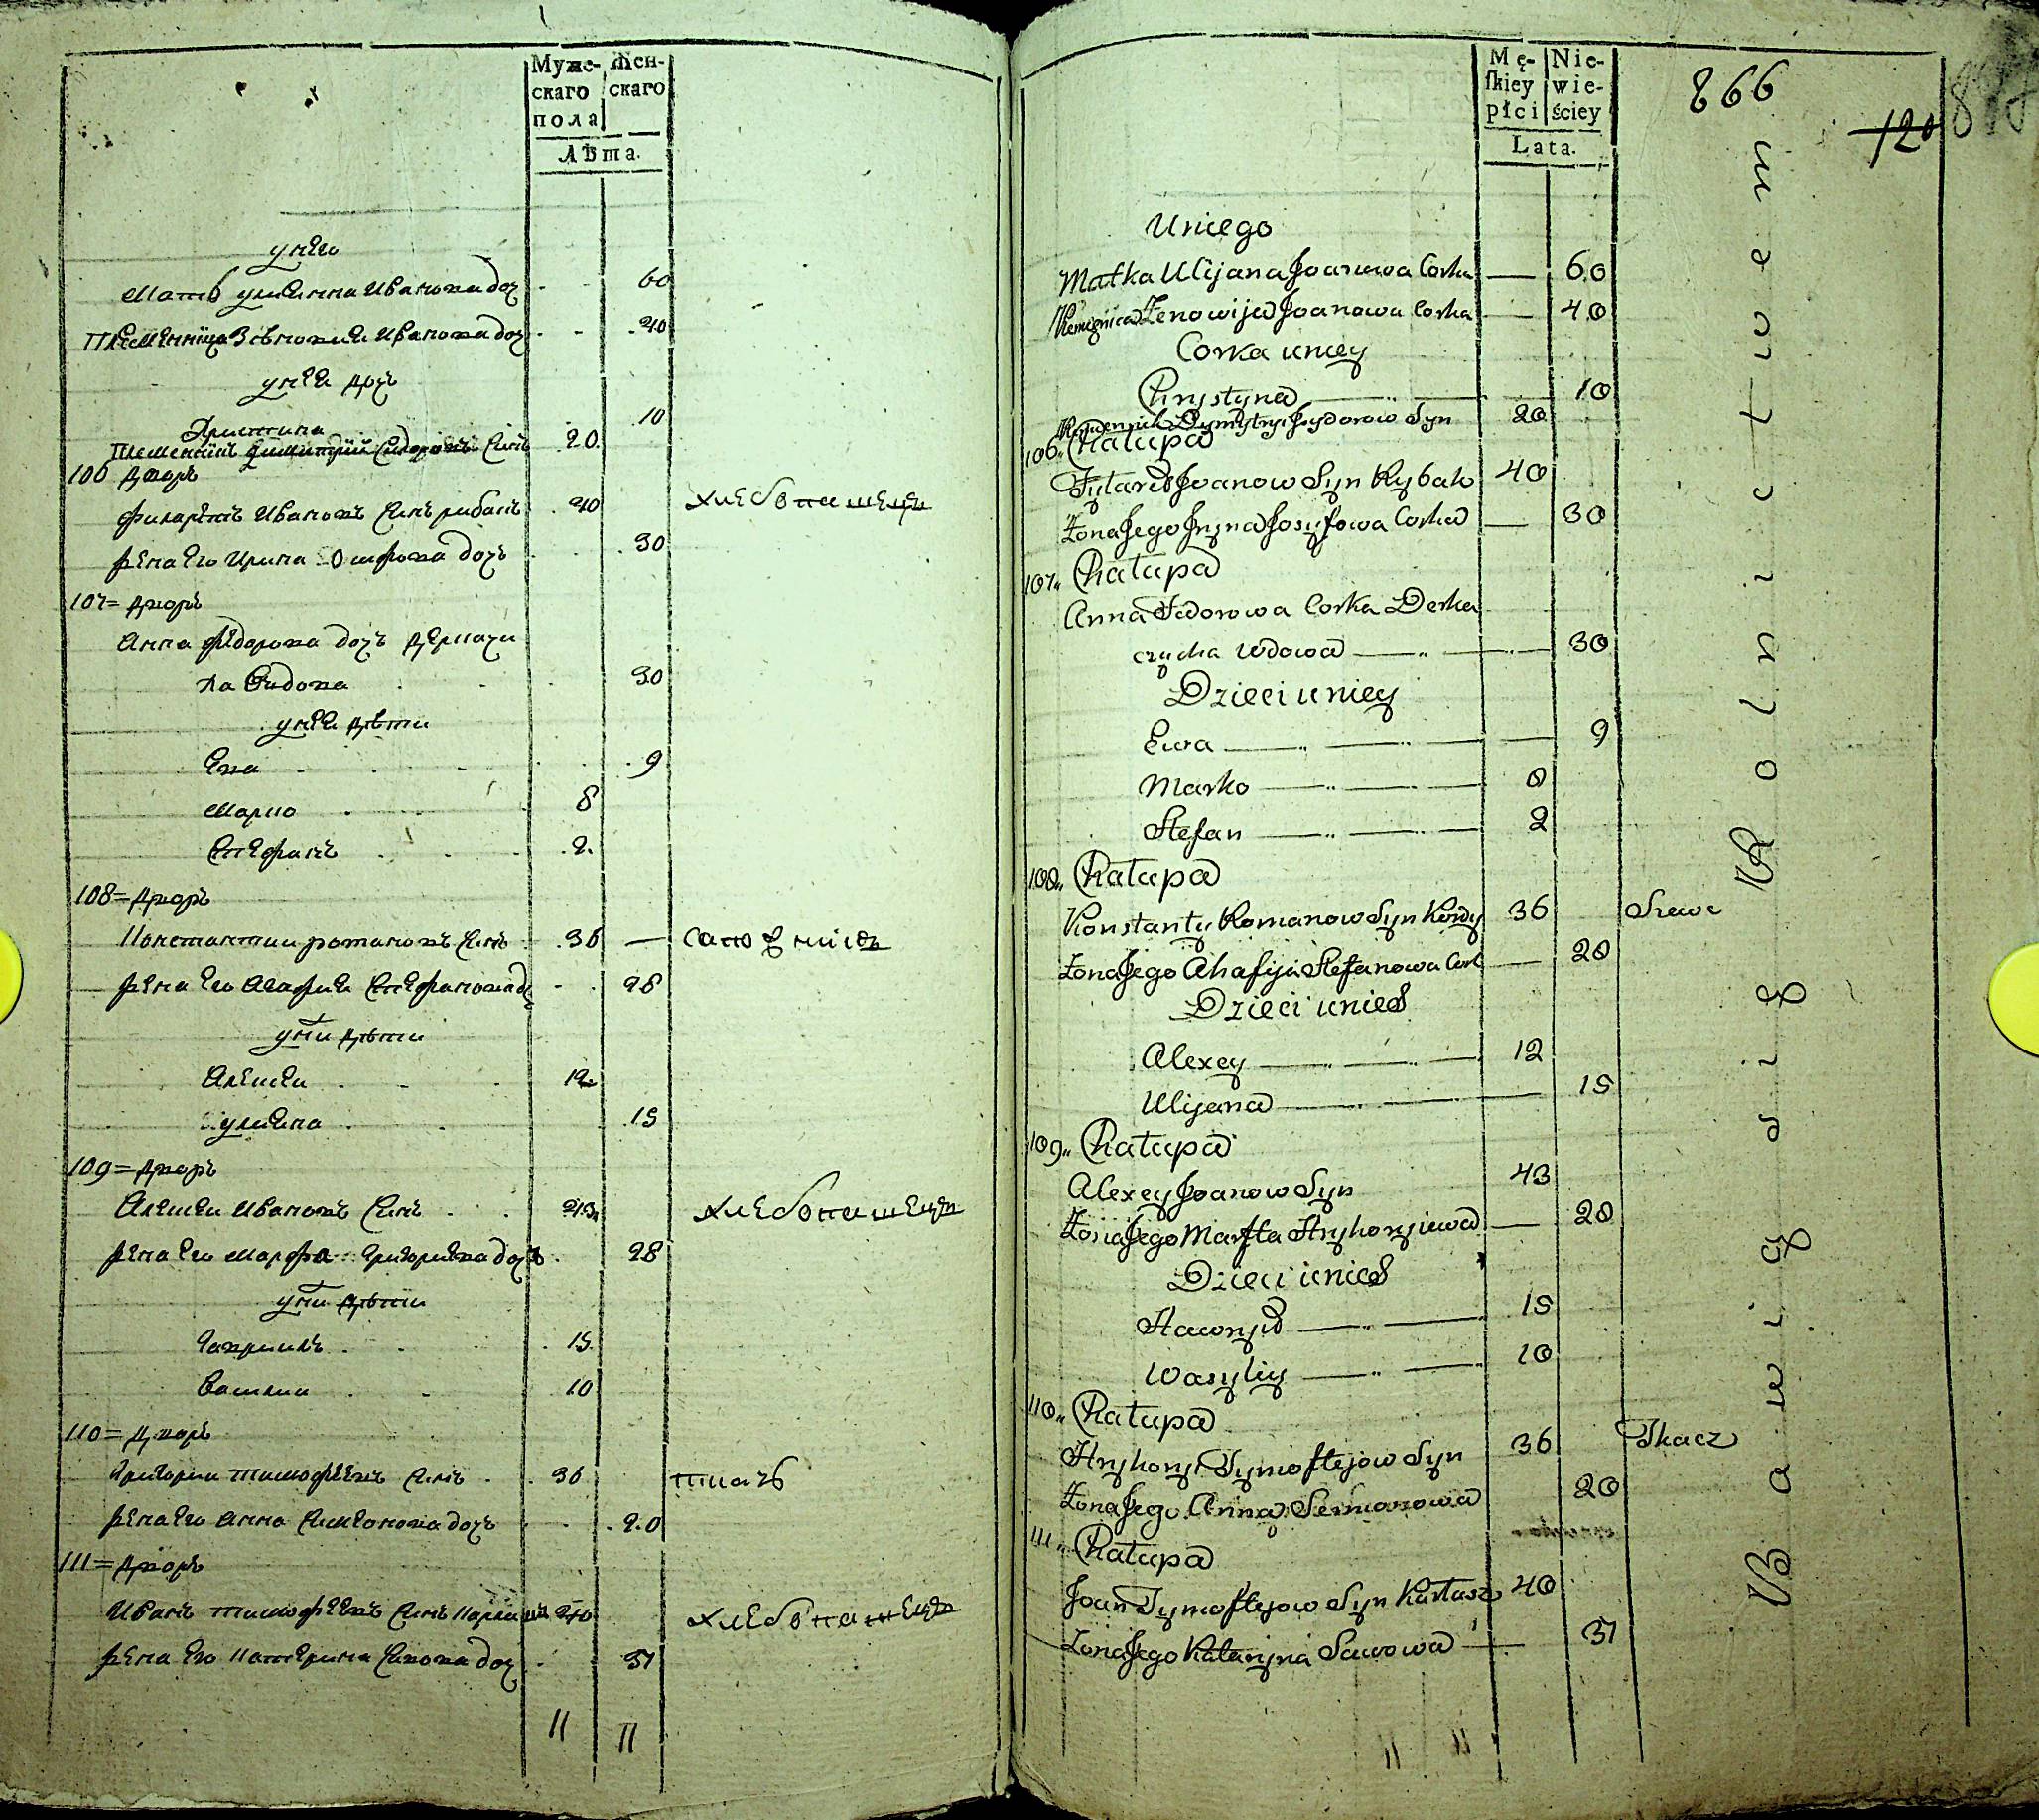 Муже- Жен-
скаго скаго
пола
Лѣта.
у него
Мать улиянна Иванова доч 60
Племенница Зѣновия Иванова доч 40
у нея доч
Христина 10
Племенник Димитрий Сидоровъ Синъ 20
106 Дворъ
Филаретъ Ивановъ Синъ рибакъ 40 хлебопашецъ
жена его Ирина Осифова дочъ 30
107= Дворъ
Анна Федорова дочъ Деркачи
ха Видова 30
у нея дѣти
Ева 9
Марко 8
Стефанъ 2
108= Дворъ
Константин романовъ Синъ 36 — сапожникъ
жена его Агафия Стефановна д 28
у них дѣти
Алексеи 12
улияна 15
109= Дворъ
Алексеи Ивановъ Синъ 43 хлебопашецъ
жена его Марфа Григориева дочъ 28
у них дѣти
Гавриилъ 15
Василии 10
110= Дворъ
Григории тимофѣевъ Синъ 36 ткачъ
жена его Анна Симеонова дочъ 20
111= Дворъ
Иванъ тимофѣевъ Синъ 40 хлебопашецъ
жена его Катерина Савова доч 31
11 11
Mę- Nie-
ſkiey wie-
płci ściey
Lata.
866
120
Uniego
Matka Ulijana Joanowa Corka — 60
Plemęnica Zenowija Joanowa Corka — 40
Corka uniey
Chrystyna 10
Dymytry Sydorow Syn 20
106„ Chałupa
Fylaret Joanow Syn Rybak 40
Zona Jego Iryna Josyfowa Corka — 30
107„ Chałupa
Anna Fedorowa Corka Derka
czycha Wdowa — 30
Dzieci uniey
Ewa — 9
Marko — 8
Stefan — 2
108„ Chałupa
Konstanty Romanow Syn 36 Szewc
Zona Jego Ahafija Stefanowa Cork — 28
Dzieci unich
Alexey — 12
Ulijana — 15
109„ Chałupa
Alexey Joanow Syn 43
Zona Jego Marfta Hryhoryiewa — 28
Dzieci unich
Hawryło — 15
Wasyliy — 10
110„ Chałupa
Hryhory Tymoftejow Syn 36 Tkacz
Zona Jego Anna Semanowa 20
111„ Chałupa
Joan Tymoftejow Syn Kartasz 40
Zona Jego Kataryna Sawowa — 31
Bawią się Rolnictwem